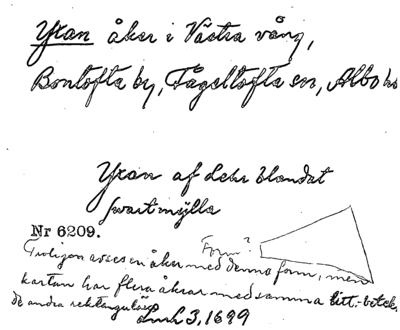 Yxan åker i Västra vång,
Bontofta by, Fågeltofta sn, Albo
Yxan af Lehr blandat
swartmylla
Nr 6209.
Form?
Troligen avses en åker med denna form, men
kartan har flera åkrar med samma litt.-beteck.
de andra rektangulära
Lmh 3, 1699